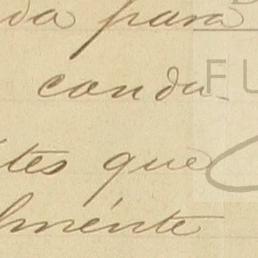 da para
condu-
tes que
lmente
FU